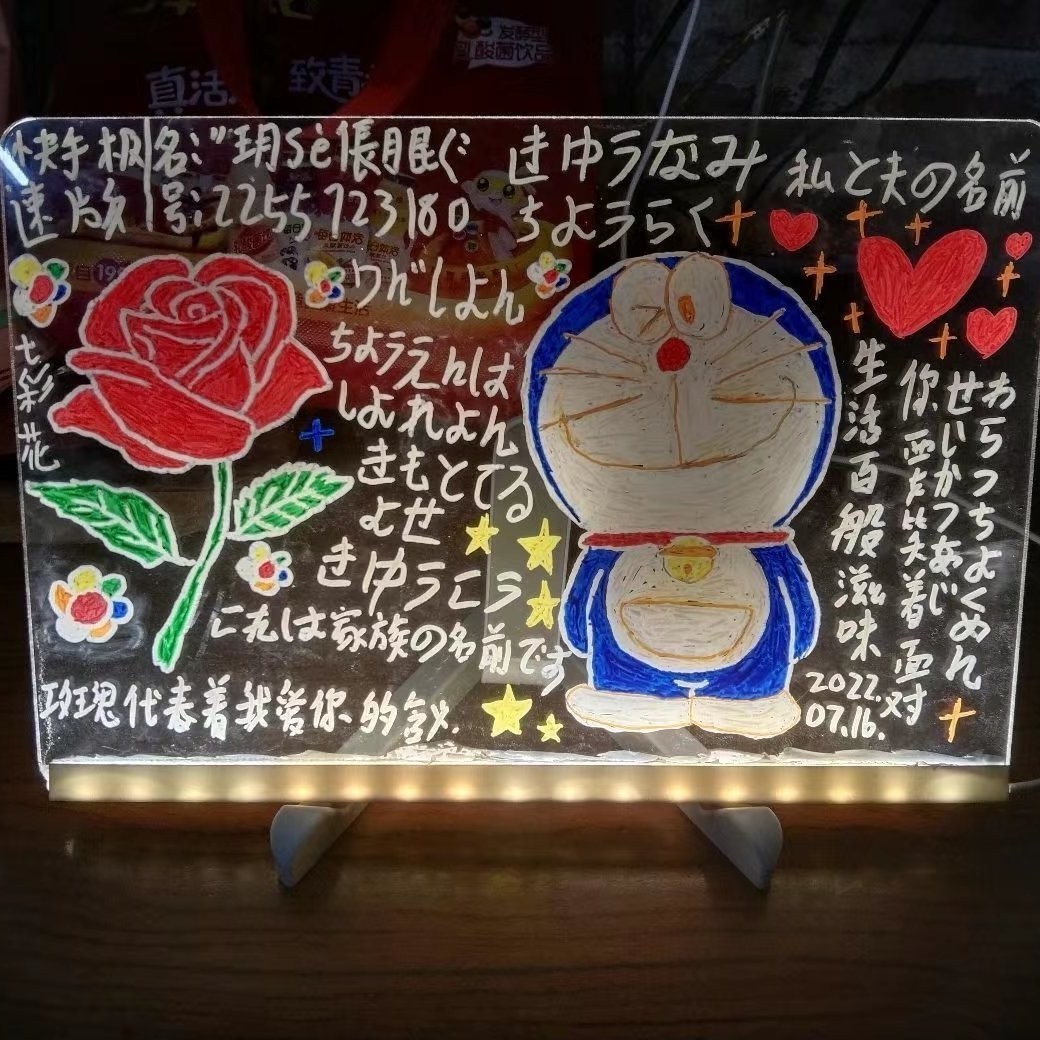 真活
致青
发酵型
乳酸菌饮品
快手极名:"玥sè張眠ぐ
速版号:2255723180
きゆうなみ
ちようらく
私と夫の名前
りんしよん
ちようえんは
しよれよん
きもとてる
よせ
きゆうこう
これは家族の名前です
七彩花
玫瑰代表着我爱你的含义.
生活百般滋味
你要笑着面对
せいかつあじ
わらつちよくめん
2022.
07.16.